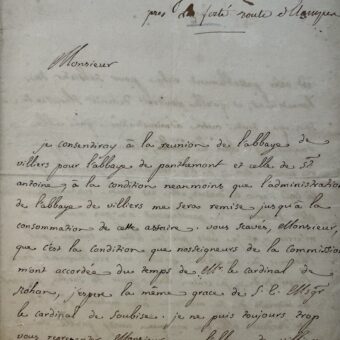 près la ferté route d'Etampes
Monsieur
je consentiray à la reunion de l'abbaye de
villiers pour l'abbaye de panthemont et celle de St
antoine, à la condition neanmoins que l'administration
de l'abbaye de villiers me sera remise jusqu'à la
consommation de cette affaire. vous scavés, Monsieur,
que c'est la condition que nosseigneurs de la commission
m'ont accordée du temps de Mgr le cardinal de
Rohan, j'espere la même grace de S. E. Mgr
le cardinal de Soubise. je ne puis toujours trop
vous